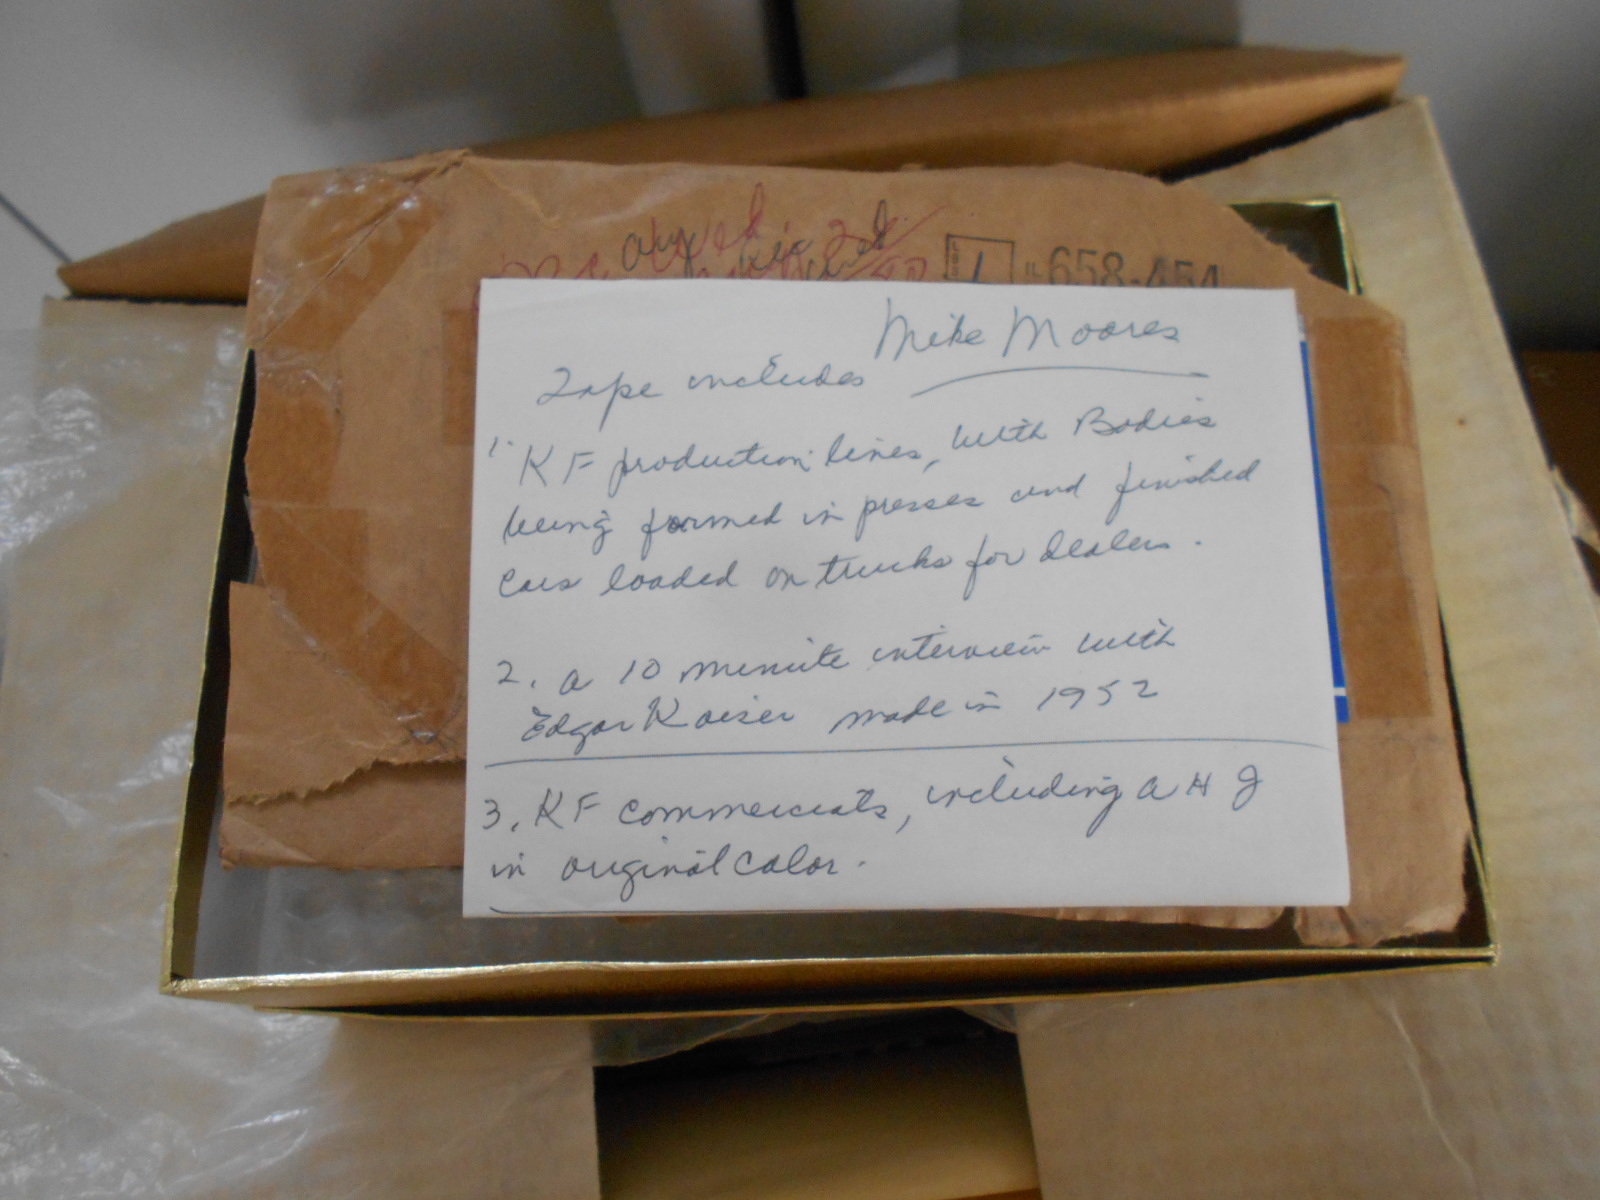 658-454
Mike Moores
Tape includes
1. KF production lines, with Bodies
being formed in presses and finished
cars loaded on trucks for dealers.
2. a 10 minute interview with
Edgar Kaiser made in 1952
3. KF commercials, including a H J
in original color.